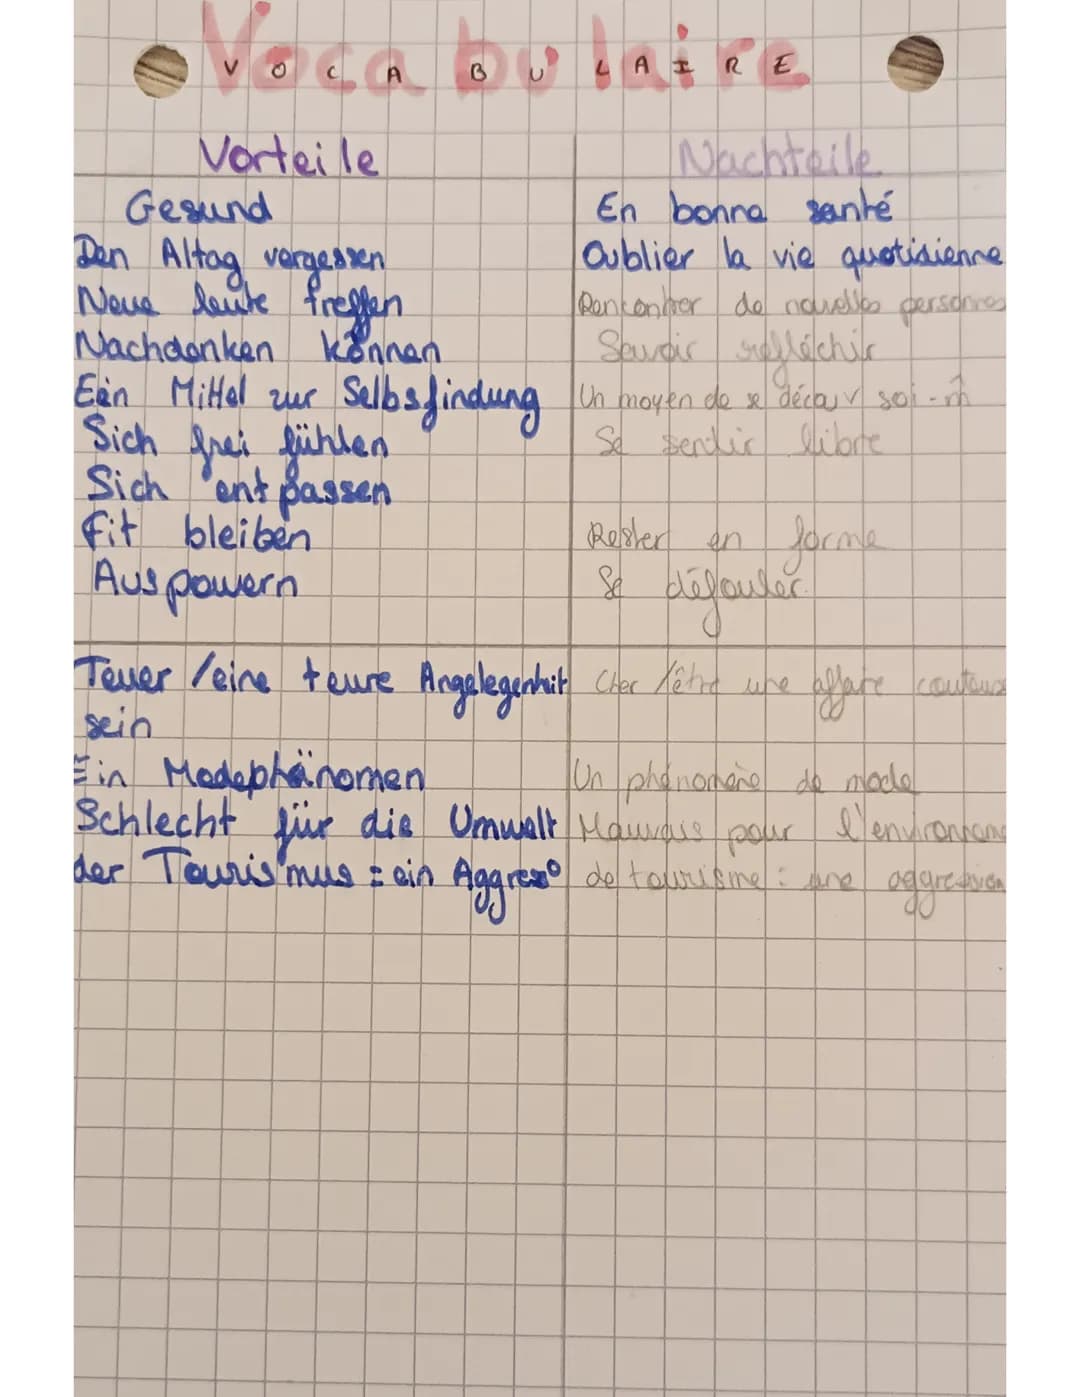 Vocabulaire
VOCABULAIRE
Vorteile Nachteile
Gesund En bonne santé
Den Altag vergessen Oublier la vie quotidienne
Neue leute treffen Rencontrer de nouvelles personnes
Nachdenken können Savoir refléchir
Ein Mittel zur Selbsfindung Un moyen de se découv soi-m̂
Sich frei fühlen Se sentir libre
Sich entpassen
Fit bleiben Rester en forme
Auspowern Se défouler
Teuer /eine teure Angelegenheit Cher /être une affaire couteuse
sein
Ein Modephänomen Un phénomène de mode
Schlecht für die Umwelt Mauvais pour l'environnem
der Tourismus = ein Aggres° de tourisme : une aggression